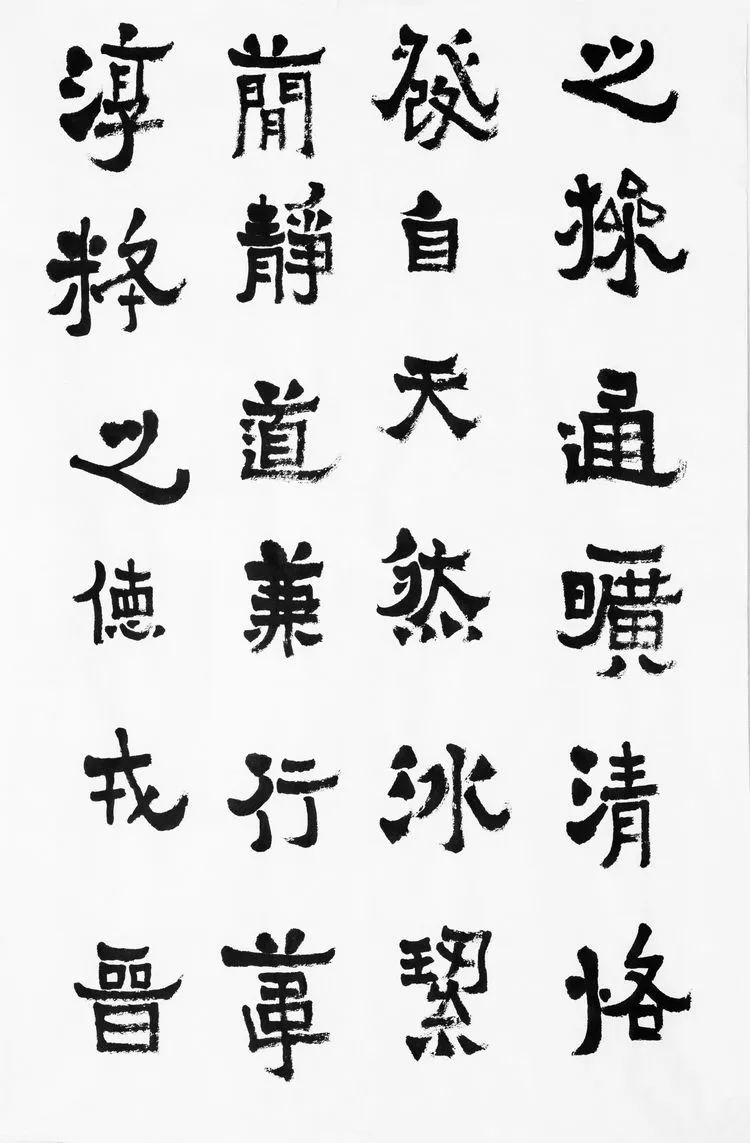 之操通曠清恪
發自天然冰絜
簡靜道兼行葦
淳粹之德戎晉